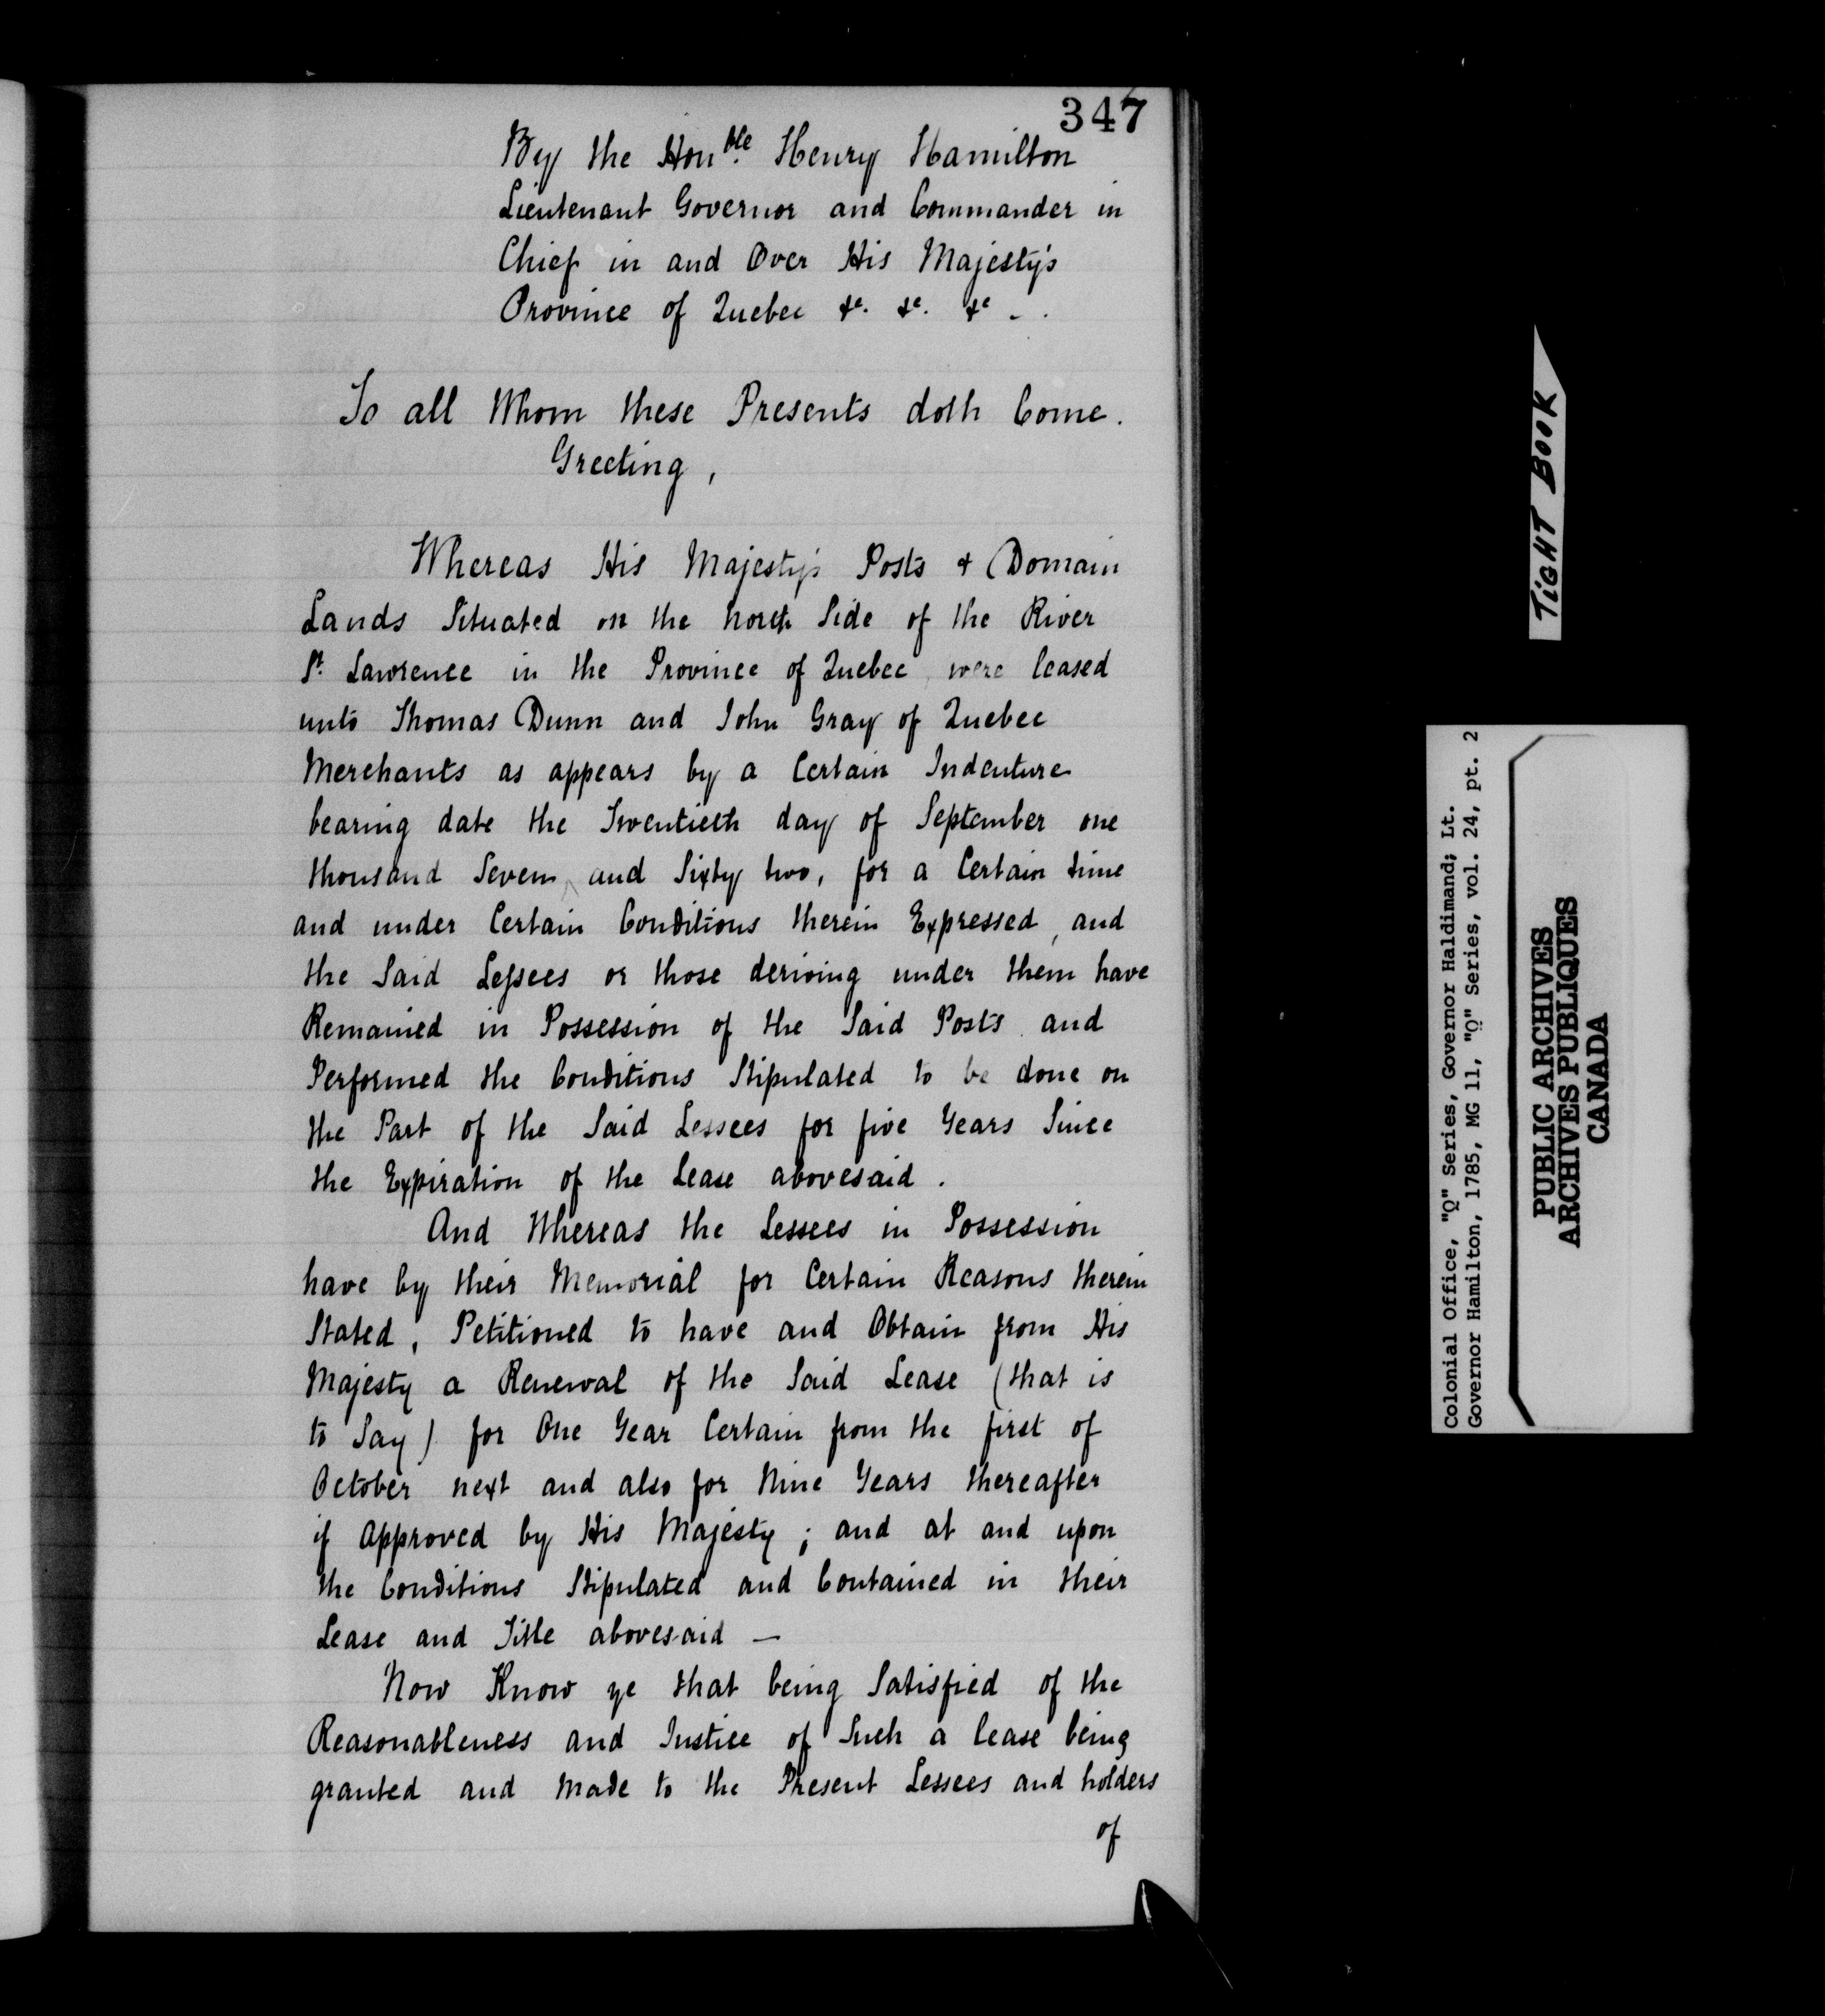 347
By the Hon.ble Henry Hamilton
Lieutenant Governor and Commander in
Chief in and Over His Majesty's
Province of Quebec &c. &c. &c - .
To all Whom these Presents doth Come.
Greeting,
Whereas His Majesty's Posts & Domain
Lands Situated on the north Side of the River
St. Lawrence in the Province of Quebec, were leased
unto Thomas Dunn and John Gray of Quebec
Merchants as appears by a Certain Indenture
bearing date the Twentieth day of September one
thousand Seven ^ and Sixty two, for a Certain time
and under Certain Conditions therein Expressed, and
the Said Leſsees or those deriving under them have
Remained in Possession of the Said Posts and
Performed the Conditions Stipulated to be done on
the Part of the Said Lessees for five Years Since
the Expiration of the Lease abovesaid.
And Whereas the Lessees in Possession
have by their Memorial for Certain Reasons therein
Stated, Petitioned to have and Obtain from His
Majesty a Renewal of the Said Lease (that is
to Say) for One Year Certain from the first of
October next and also for Nine Years thereafter
if Approved by His Majesty; and at and upon
the Conditions Stipulated and Contained in their
Lease and Title abovesaid —
Now Know ye that being Satisfied of the
Reasonableness and Justice of Such a lease being
granted and Made to the Present Lessees and holders
of
TIGHT BOOK
Colonial Office, "Q" Series, Governor Haldimand; Lt.
Governor Hamilton, 1785, MG 11, "Q" Series, vol. 24, pt. 2
PUBLIC ARCHIVES
ARCHIVES PUBLIQUES
CANADA